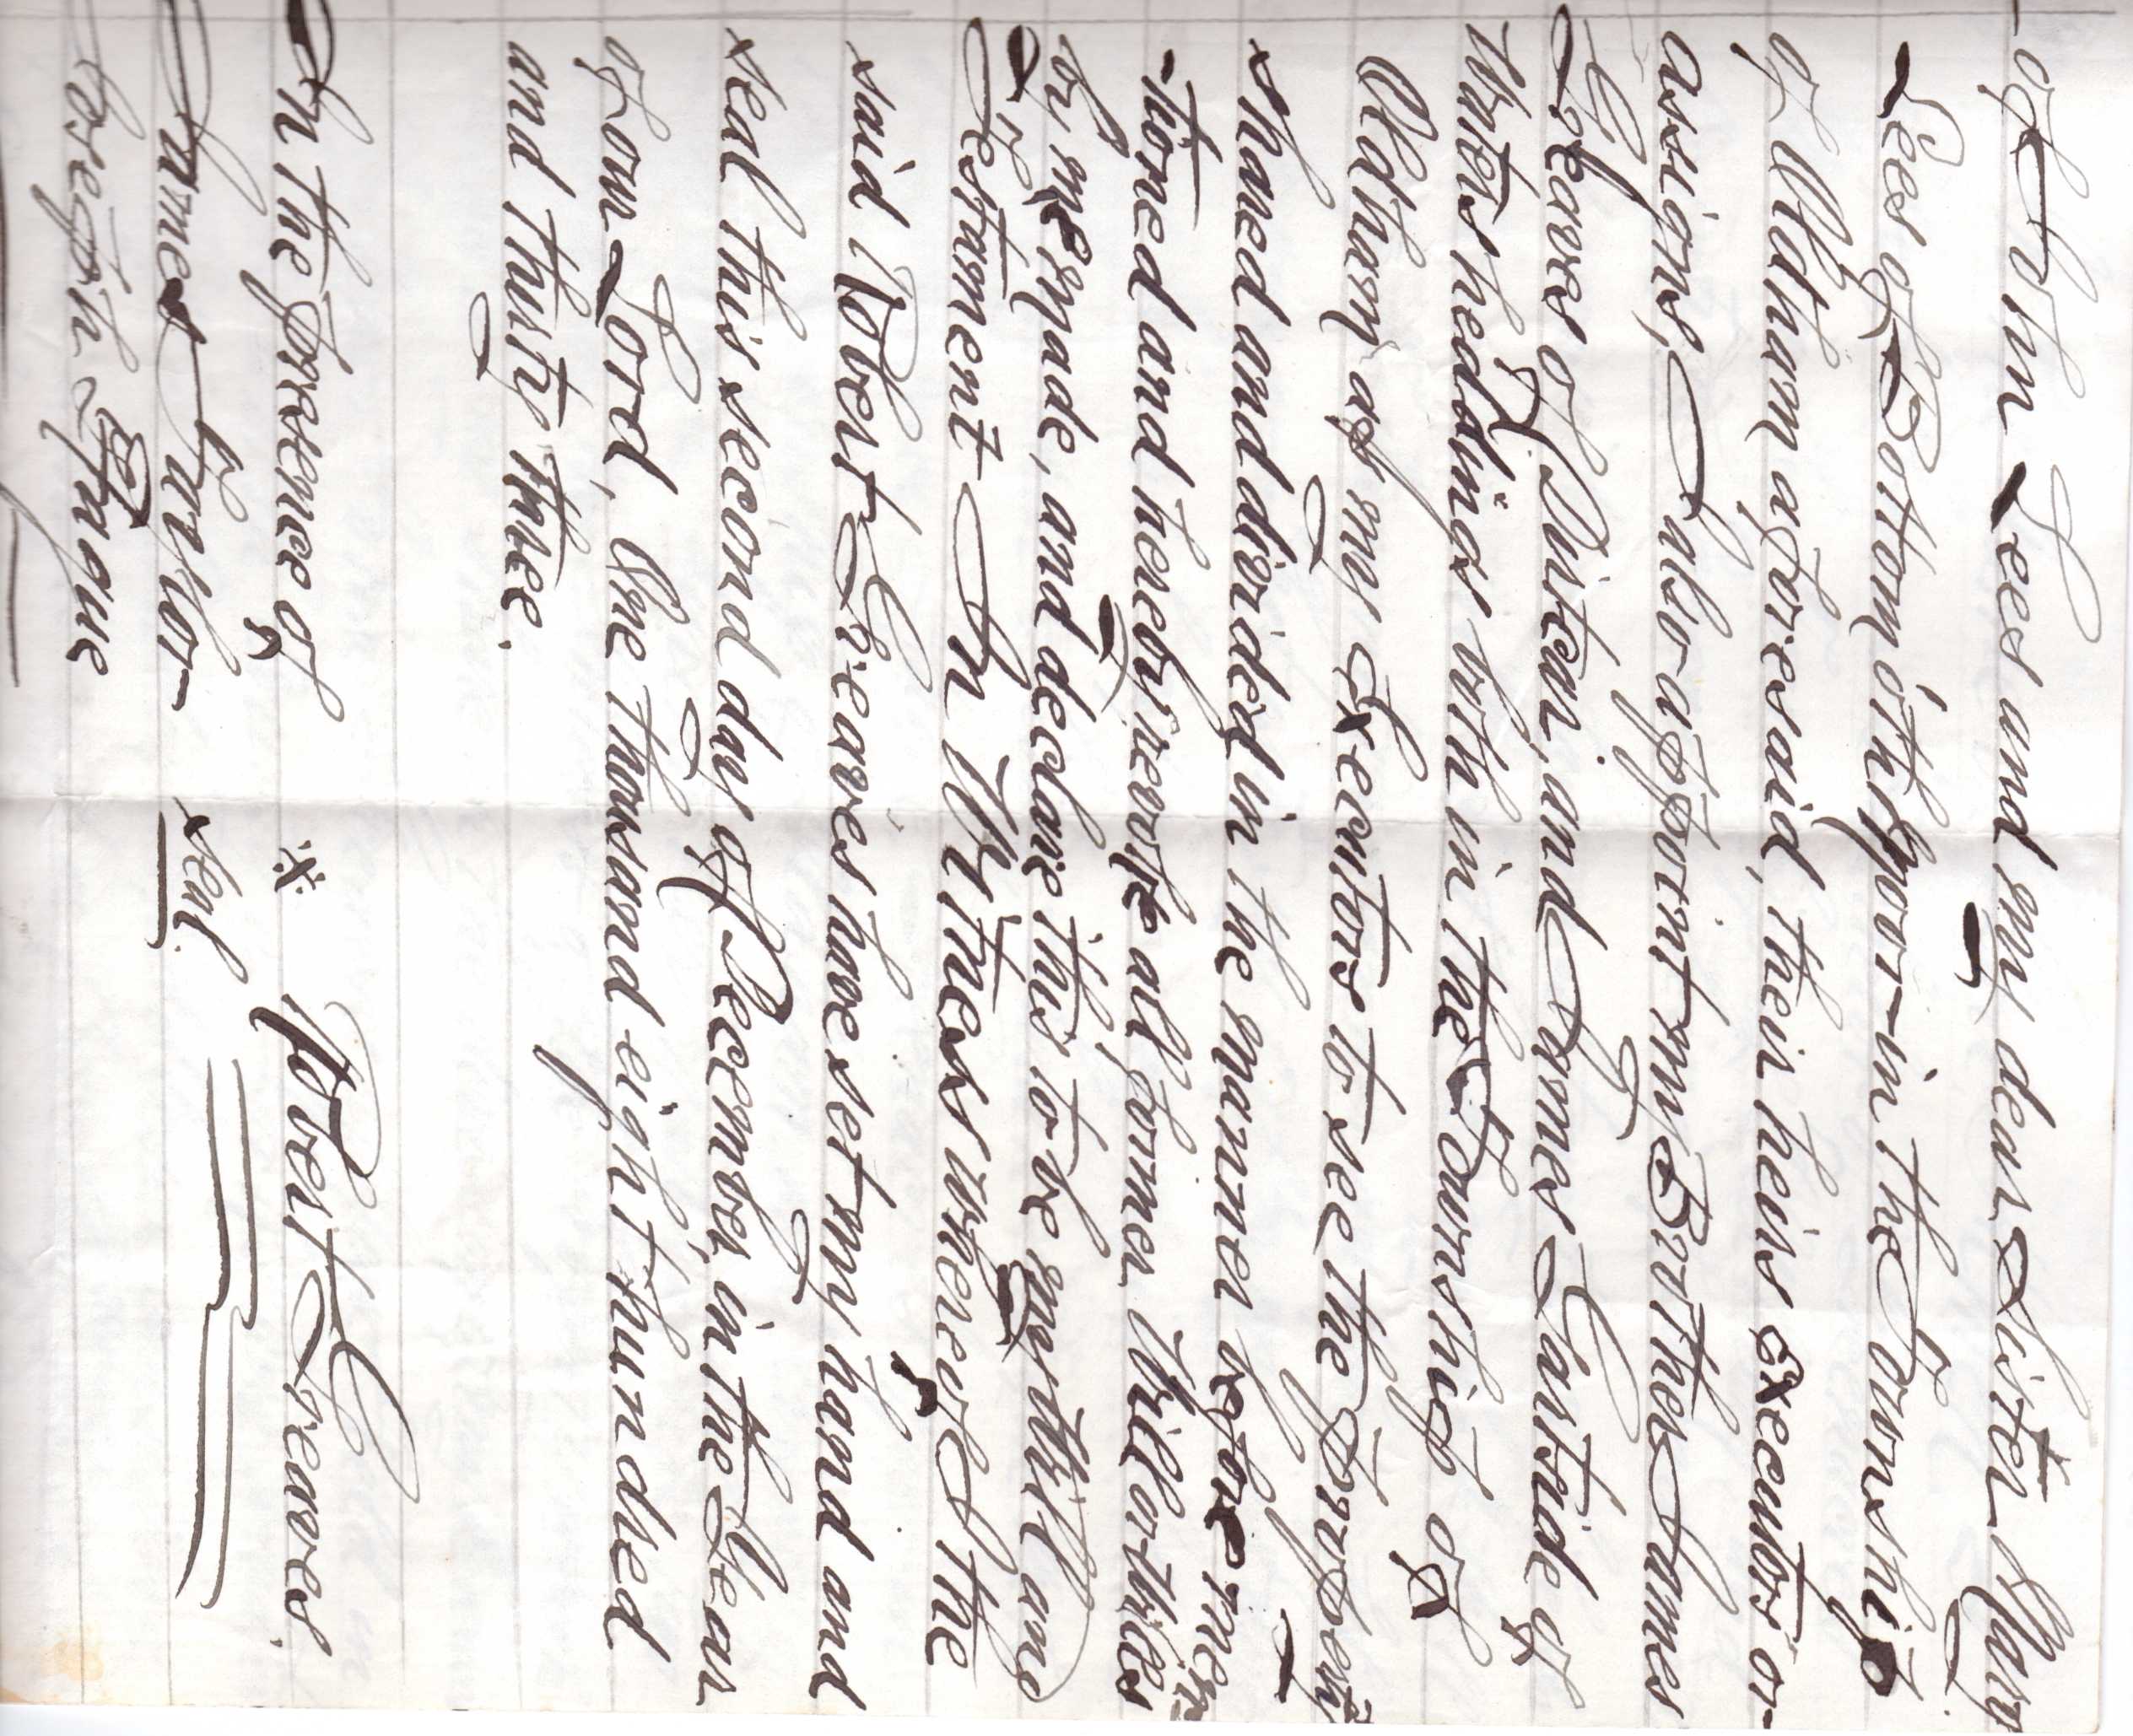 of John Lees and my dear sister Mary
Lees of Bottom oth Moor in the Township
of Oldham aforesaid, their heirs executors or
assigns, I also appoint my Brother James
Greaves of Distean, and James Gartside of
Waters headdings both in the Township of
Oldham as my Executors to see the Property
shared and divided in the manner before men
-tioned and hereby revoke all former Will or Wills
by me made, and declare this to be my Will and
Testament In Witness whereof I the
said Robert Greaves have set my hand and
seal this second day of December, in the Year
of our Lord, One thousand eight hundred
and thirty three.
In the presence of Robert Greaves.
James Taylor seal.
Joseph Sprague